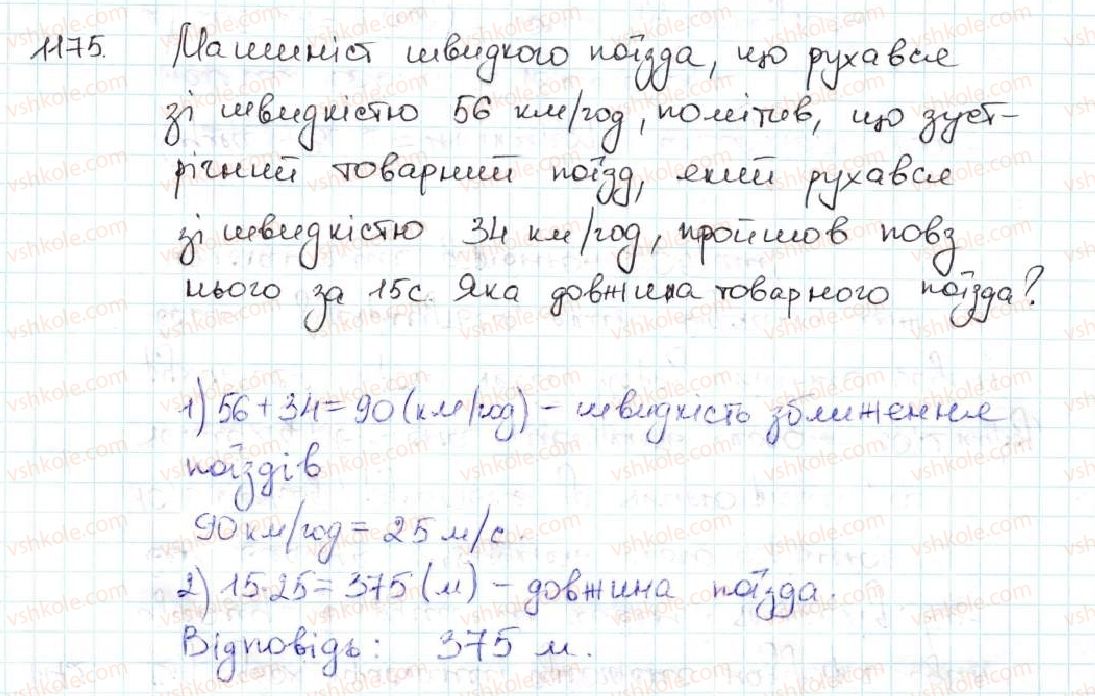 1175. Машиніст швидкого поїзда, що рухався
зі швидкістю 56 км/год, помітив, що зуст-
річний товарний поїзд, який рухався
зі швидкістю 34 км/год, пройшов повз
нього за 15с. Яка довжина товарного поїзда?
1) 56 + 34 = 90 (км/год) - швидкість зближення
поїздів
90 км/год = 25 м/с.
2) 15·25 = 375 (м) - довжина поїзда.
Відповідь: 375 м.